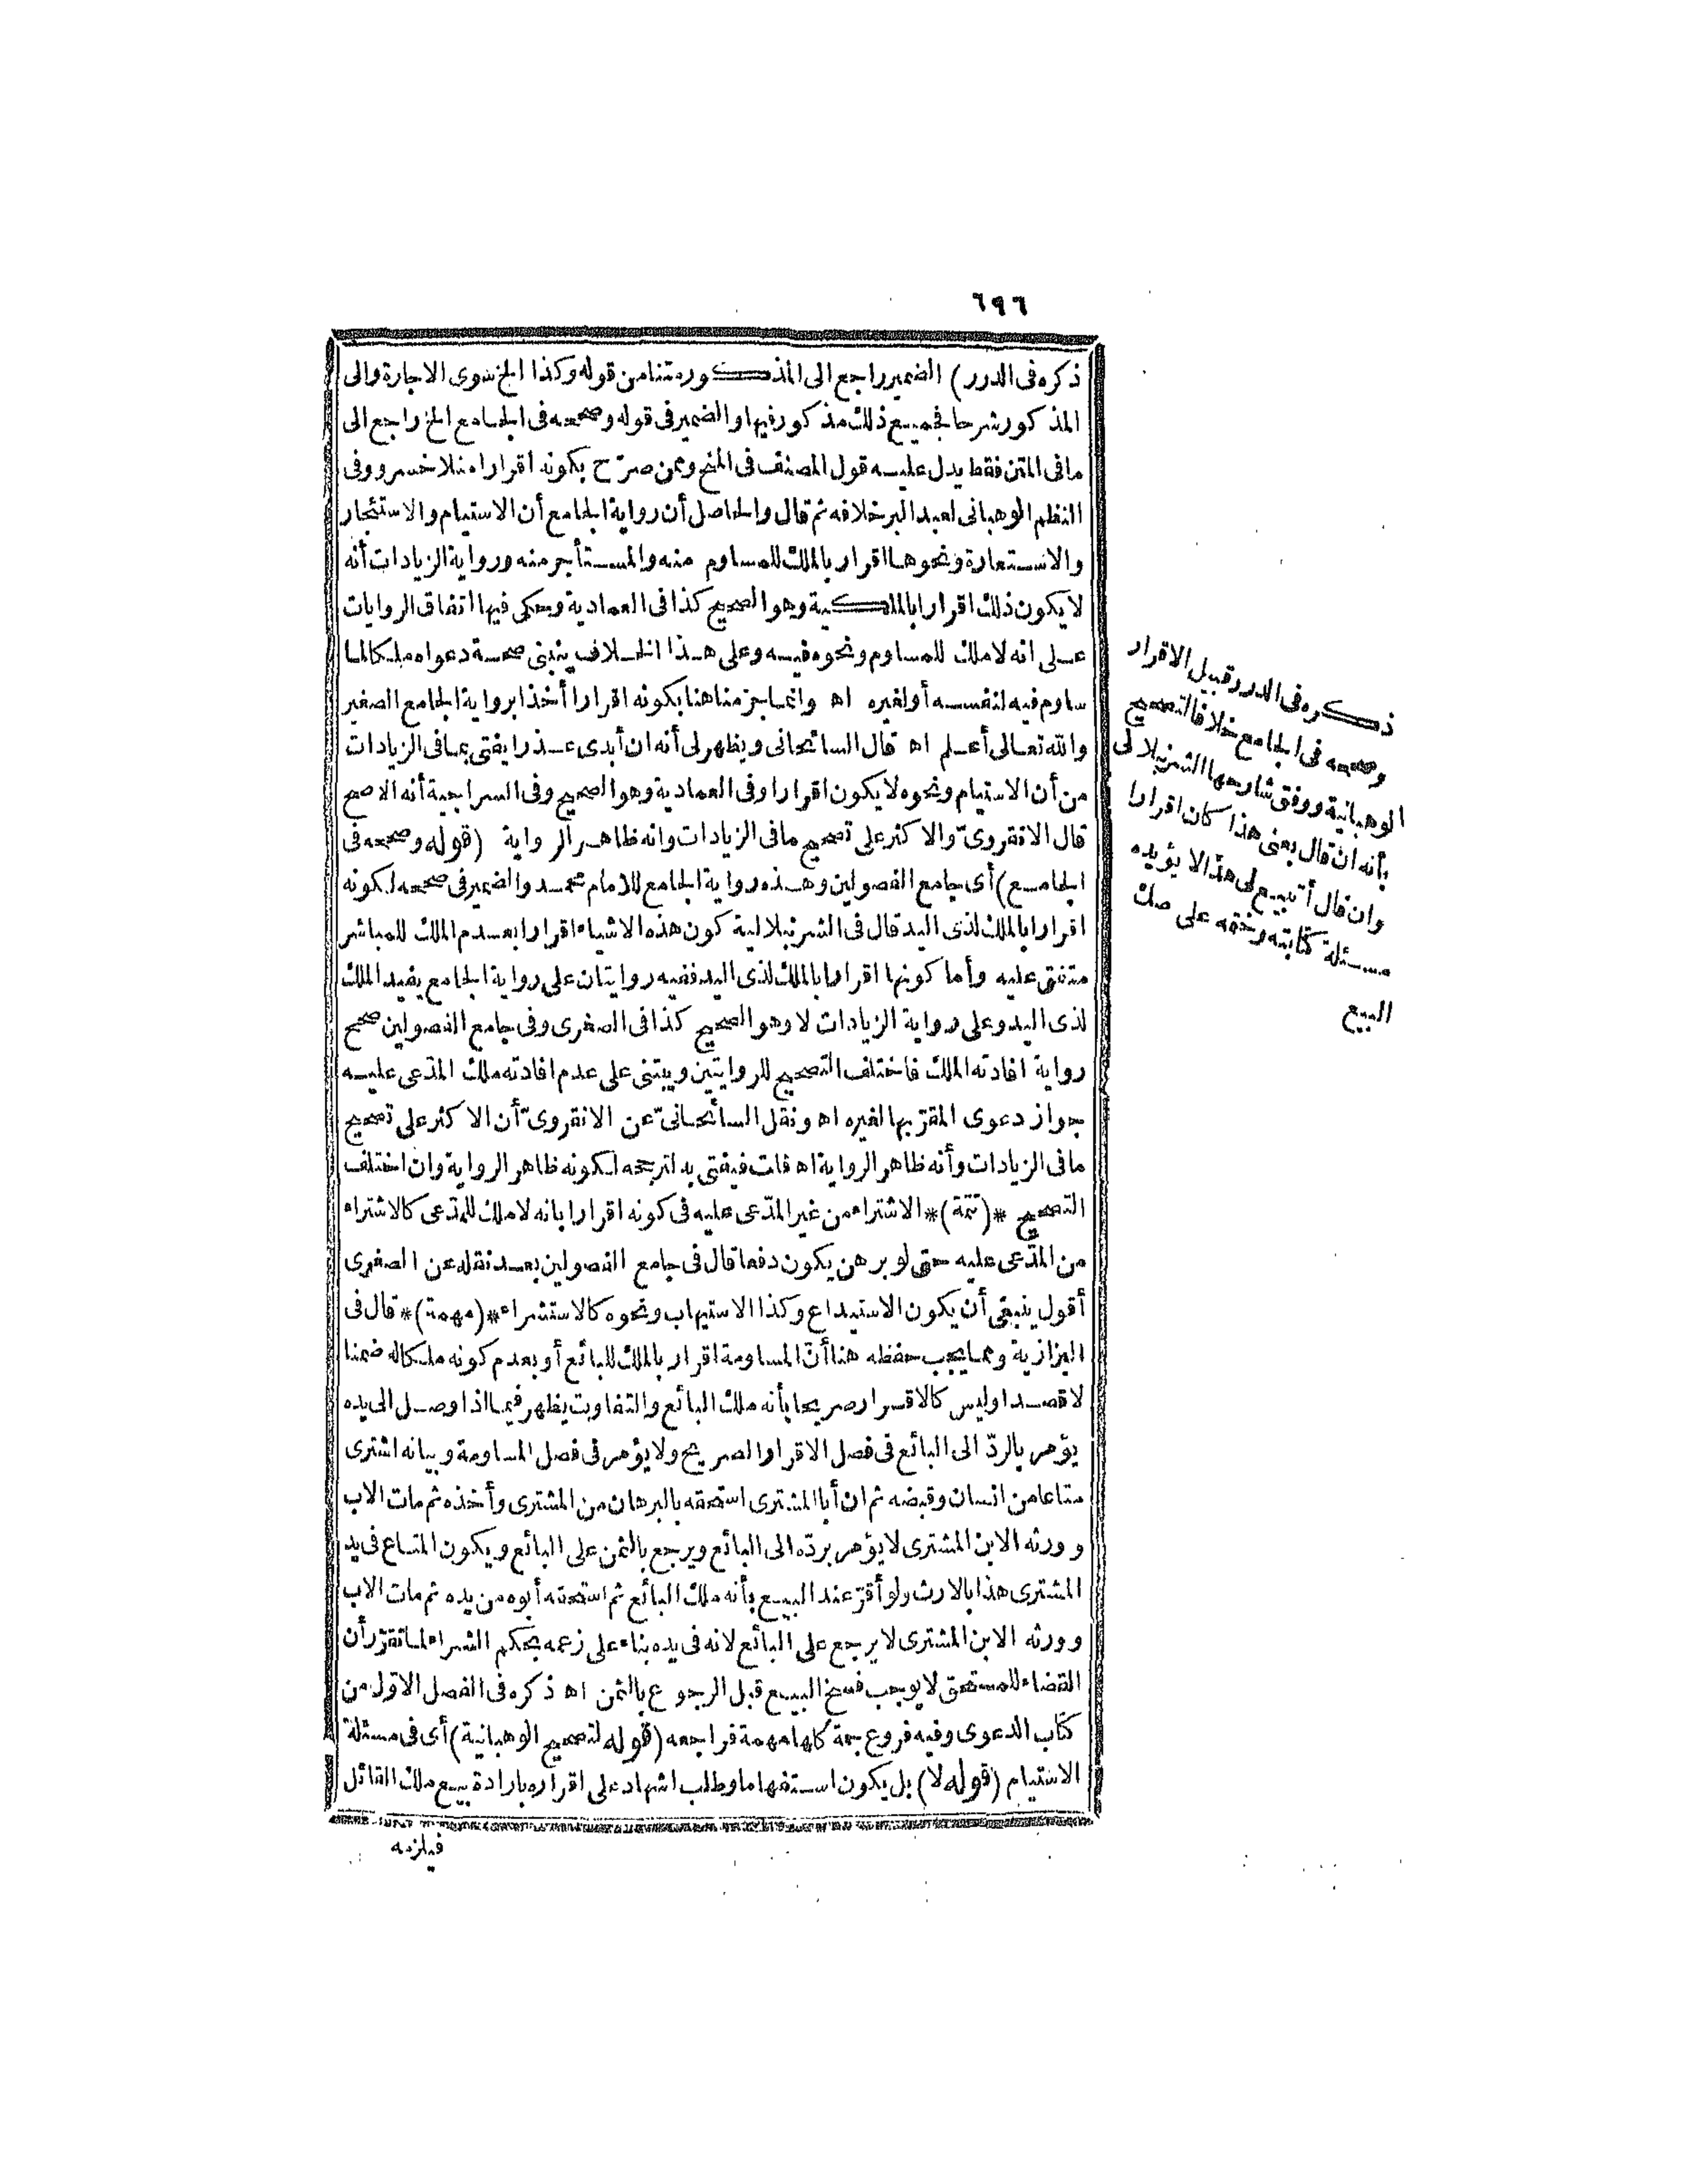 ٦٩٦
ذكره فى الدرر) الضمير راجع الى المذكور متنا من قوله وكذا الخ سوى الاجارة والى
المذكور شرحا فجميع ذلك مذكور فيها والضمير فى قوله وصححه فى الجامع الخ راجع الى
ما فى المتن فقط يدل عليه قول المصنف فى المنح وممن صرّح بكونه اقرارا منلا خسرو وفى
النظم الوهبانى لعبد البر خلافه ثم قال والحاصل أن رواية الجامع أن الاستيام والاستئجار
والاستعارة ونحوها اقرار بالملك للمساوم منه والمستأجر منه ورواية الزيادات أنه
لا يكون ذلك اقرارا بالملكية وهو الصحيح كذا فى العمادية وحكى فيها اتفاق الروايات
على انه لا ملك للمساوم ونحوه فيه وعلى هذا الخلاف ينبنى صحة دعواه ملكا لما
ساوم فيه لنفسه أو لغيره اه وانما جزمنا هنا بكونه اقرارا أخذا برواية الجامع الصغير
والله تعالى أعلم اه قال السائحانى ويظهر لى أنه ان أبدى عذرا يفتى بما فى الزيادات
من أن الاستيام ونحوه لا يكون اقرارا وفى العمادية وهو الصحيح وفى السراجية أنه الاصح
قال الانقروىّ والاكثر على تصحيح ما فى الزيادات وانه ظاهر الرواية (قوله وصححه فى
الجامع) أى جامع الفصولين وهذه رواية الجامع للامام محمد والضمير فى صححه لكونه
اقرارا بالملك لذى اليد قال فى الشرنبلالية كون هذه الاشياء اقرارا بعدم الملك للمباشر
متفق عليه وأما كونها اقرارا بالملك لذى اليد ففيه روايتان على رواية الجامع يفيد الملك
لذى اليد وعلى رواية الزيادات لا وهو الصحيح كذا فى الصغرى وفى جامع الفصولين صحح
رواية افادته الملك فاختلف التصحيح للروايتين ويبتنى على عدم افادته ملك المدعى عليه
جواز دعوى المقرّ بها لغيره اه ونقل السائحانىّ عن الانقروىّ أن الاكثر على تصحيح
ما فى الزيادات وأنه ظاهر الرواية اه قلت فيفتى به لترجحه لكونه ظاهر الرواية وان اختلف
التصحيح *(تتمة)* الاشتراء من غير المدّعى عليه فى كونه اقرارا بانه لا ملك للمدّعى كالاشتراء
من المدّعى عليه حتى لو برهن يكون دفعا قال فى جامع الفصولين بعد نقله عن الصغرى
أقول ينبغى أن يكون الاستيداع وكذا الاستيهاب ونحوه كالاستشراء *(مهمة)* قال فى
البزازية ومما يجب حفظه هنا أنّ المساومة اقرار بالملك للبائع أو بعدم كونه ملكا له ضمنا
لا قصدا وليس كالاقرار صريحا بأنه ملك البائع والتفاوت يظهر فيما اذا وصل الى يده
يؤمر بالردّ الى البائع فى فصل الاقرار الصريح ولا يؤمر فى فصل المساومة وبيانه اشترى
متاعا من انسان وقبضه ثم ان أبا المشترى استحقه بالبرهان من المشترى وأخذه ثم مات الاب
وورثه الابن المشترى لا يؤمر بردّه الى البائع ويرجع بالثمن على البائع ويكون المتاع فى يد
المشترى هذا بالارث ولو أقرّ عند البيع بأنه ملك البائع ثم استحقه أبوه من يده ثم مات الاب
وورثه الابن المشترى لا يرجع على البائع لانه فى يده بناء على زعمه بحكم الشراء لما تقرّر أن
القضاء للمستحق لا يوجب فسخ البيع قبل الرجوع بالثمن اه ذكره فى الفصل الاوّل من
كتاب الدعوى وفيه فروع جمة كلها مهمة فراجعه (قوله لتصحيح الوهبانية) أى فى مسئلة
الاستيام (قوله لا) بل يكون استفهاما وطلب اشهاد على اقراره بارادة بيع ملك القائل
فيلزمه
ذكره فى الدرر قبيل الاقرار
وصححه فى الجامع خلافا لتصحيح
الوهبانية ووفق شارحها الشرنبلالى
بأنه ان قال بعنى هذا كان اقرارا
وان قال أتبيع لى هذا لا يؤيده
مسئلة كتابته وختمه على صك
البيع